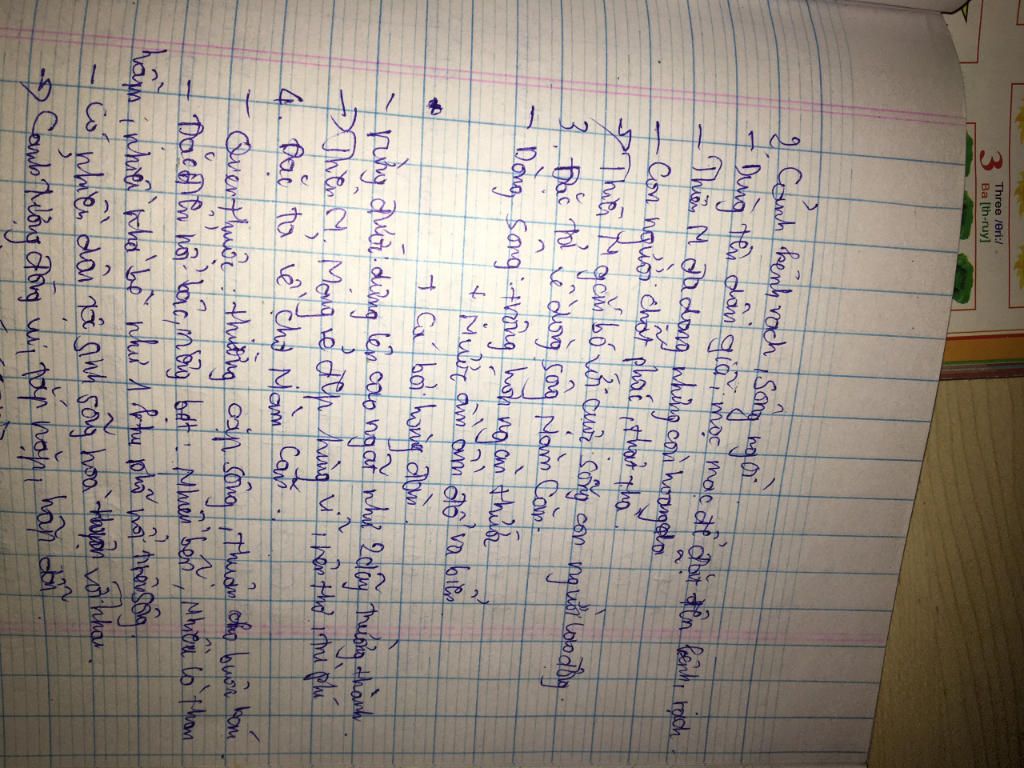 2. Cảnh kênh rạch, sông ngòi.
- Dùng tên dân giã, mộc mạc để đặt tên kênh, rạch.
- Thiên N đa dạng nhưng còn hoang dã
- Con người: chất phác, thật thà.
-> Thiên N gắn bó với cuộc sống con người lao động
3. Đặc tả về dòng sông Năm Căn.
- Dòng sông: + rộng hơn ngàn thước
+ Nước ầm ầm đổ ra biển
+ Cá bơi hàng đàn.
- rừng đước: dựng lên cao ngất như 2 dãy trường thành.
-> Thiên N. Mang vẻ đẹp hùng vĩ, nên thơ, trù phú
4. Đặc tả về chợ Năm Căn.
- Quen thuộc: giống cặp sông, thuyền buôn bán
- Đặc điểm nổi bật: Nhiều bến, Nhiều lò than
hầm, nhiều nhà bè như 1 khu phố nổi trên sông.
- Có nhiều dân tộc sinh sống hòa thuận với nhau.
-> Cảnh tượng đông vui, tấp nập, hấp dẫn
3
Three /θri:/
Ba [thruy]